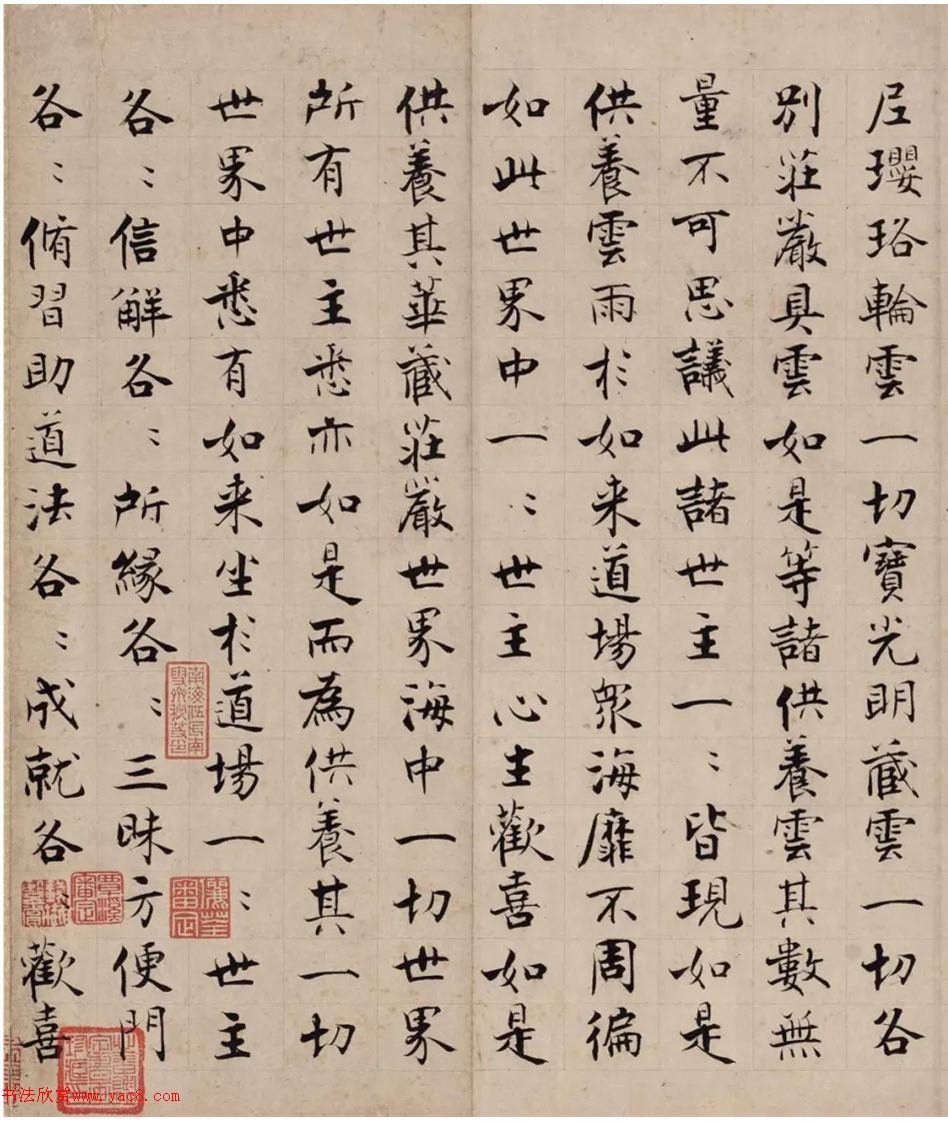 尼瓔珞輪雲一切寶光明藏雲一切各
別莊嚴具雲如是等諸供養雲其數無
量不可思議此諸世主一〻皆現如是
供養雲雨於如来道場衆海靡不周徧
如此世界中一〻世主心生歡喜如是
供養其華藏莊嚴世界海中一切世界
所有世主悉亦如是而為供養其一切
世界中悉有如来坐於道場一〻世主
各〻信解各〻所緣各〻三昧方便門
各〻脩習助道法各〻成就各〻歡喜
书法欣赏www.yac8.com